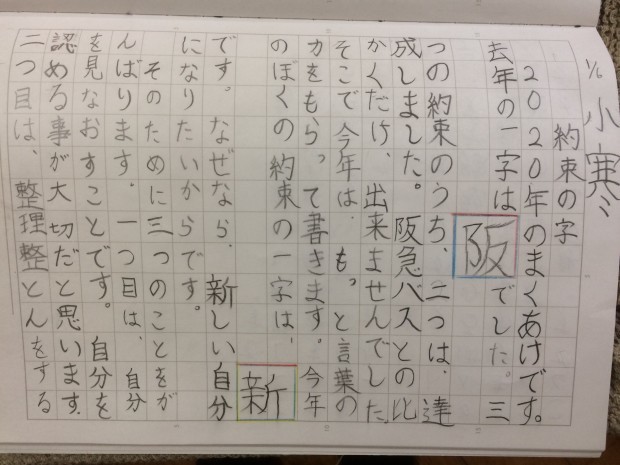 1/6 小寒
約束の字
2020年のまくあけです。
去年の一字は阪でした。三
つの約束のうち、二つは、達
成しました。阪急バスとの比
かくだけ、出来ませんでした。
そこで今年は、もっと言葉の
力をもらって書きます。今年
のぼくの約束の一字は、新
です。なぜなら、新しい自分
になりたいからです。
そのために三つのことをが
んばります。一つ目は、自分
を見なおすことです。自分を
認める事が大切だと思います。
二つ目は、整理整とんをする